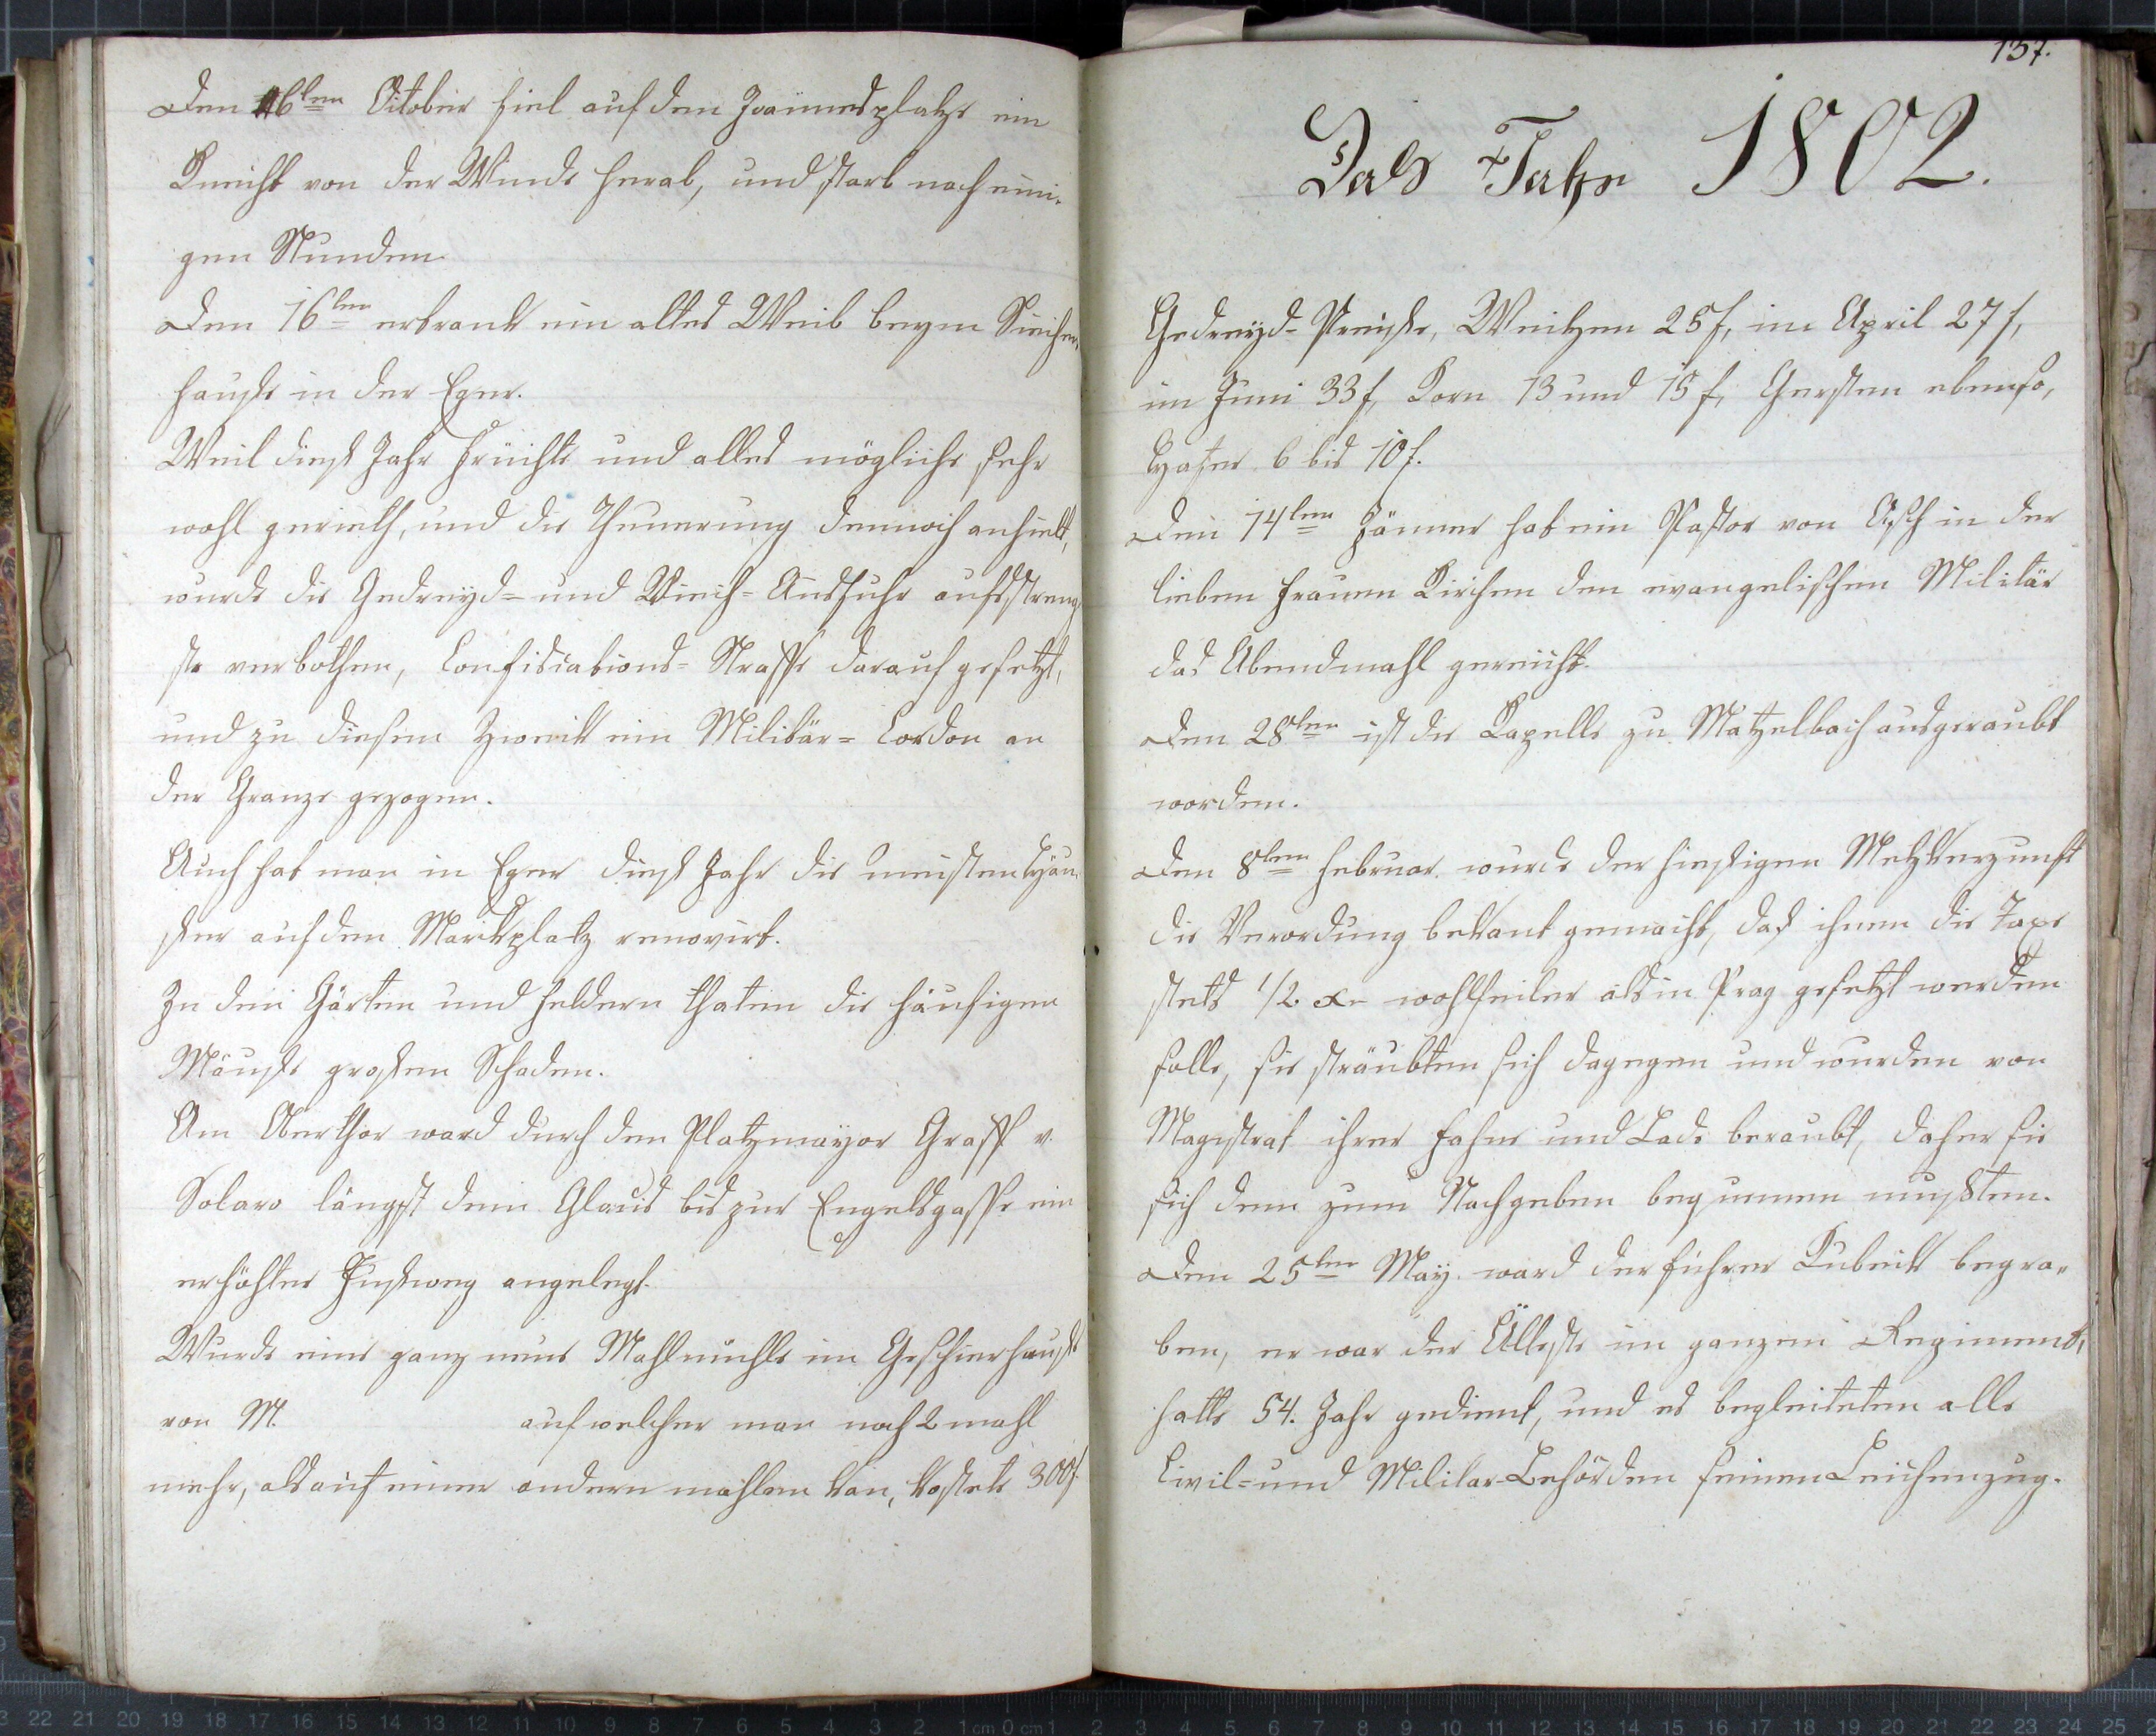 Den 16ten October fiel auf dem Joannesplatze ein
Knecht von der Winde herab, und starb nach eini-
gen Stunden.
Den 16ten ertrank ein altes Weib beym Siechen-
hauße in der Eger.
Weil dieß Jahr Früchte und alles mögliche sehr
wohl gerieth, und die Theuerung dennoch anhielt,
wurde die Gedreyd- und Viech-Ausfuhr aufsstreng-
ste verbothen, Confiscations-Straffe darauf gesetzt,
und zu diesem Zweck ein Militär-Cordon an
der Granze gezogen.
Auch hat man in Eger dieß Jahr die meisten Häu-
ßer auf dem Marktplatz renovirt.
In den Gärten und Feldern thaten die häufigen
Mäuße großen Schaden.
Am Oberthor ward durch den Platzmayor Graff v.
Solaro längst dem Glacis bis zur Engelsgasse ein
erhöhter Fußweg angelegt.
Wurde eine ganz neue Mahlmühle im Geschierhauße
von M. auf welcher man noch 2 mahl
mehr, als auf einer andern mahlen kan, kostete 300f
137.
Das Jahr 1802.
Gedreyd-Preiße, Weitzen 25f, im April 27f,
im Juni 33f, Korn 13 und 15f, Gersten ebenso,
Hafer 6 bis 10f.
Den 14ten Jänner hat ein Pastor von Asch in der
lieben Frauen Kirchen dem evangelischen Militär
das Abendmahl gereicht.
Den 28ten ist die Kapelle zu Matzelbach ausgeraubt
worden.
Den 8ten Februar wurde der hiesigen Metzkerzunft
die Verordung bekant gemacht, daß ihnen die Taxe
stets 1/2 xr wohlfeiler als in Prag gesetzt werden
solle, sie sträubten sich dagegen und wurden von
Magistrat ihrer Fahne und Lade beraubt, daher sie
sich dem zum Nachgeben bequemen mußten.
Den 25ten May ward der Führer Kubeck begra-
ben, er war der Älteste im ganzen Regiment,
hatte 54. Jahr gedient, und es begleiteten alle
Civil- und Militar-Behörden seinen Leichenzug.